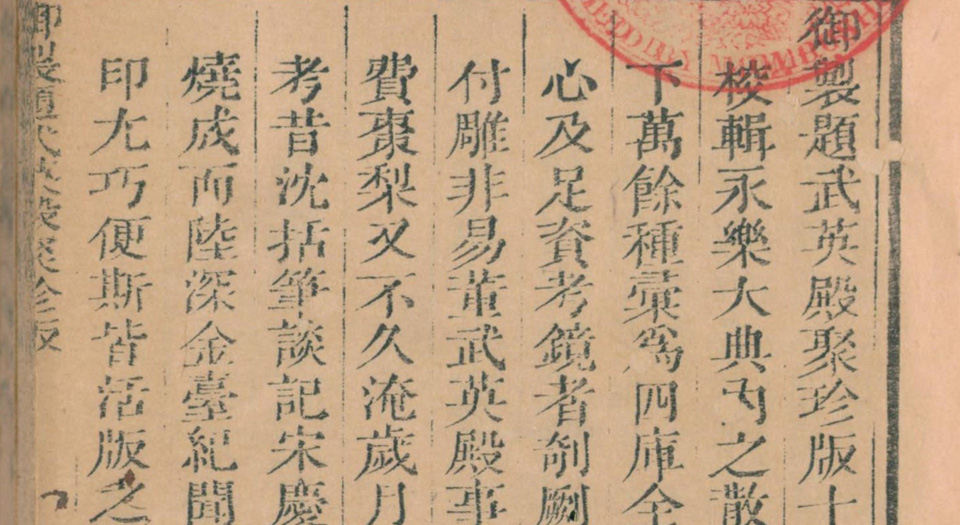 御製題武英殿聚珍版十
校輯永樂大典內之散
下萬餘種彙爲四庫全
心及足資考鏡者剞劂
付雕非易董武英殿事
費棗梨又不久淹歲月
考昔沈括筆談記宋慶
燒成而陸深金臺紀聞
印尤巧便斯皆活版之
御製題武英殿聚珍版